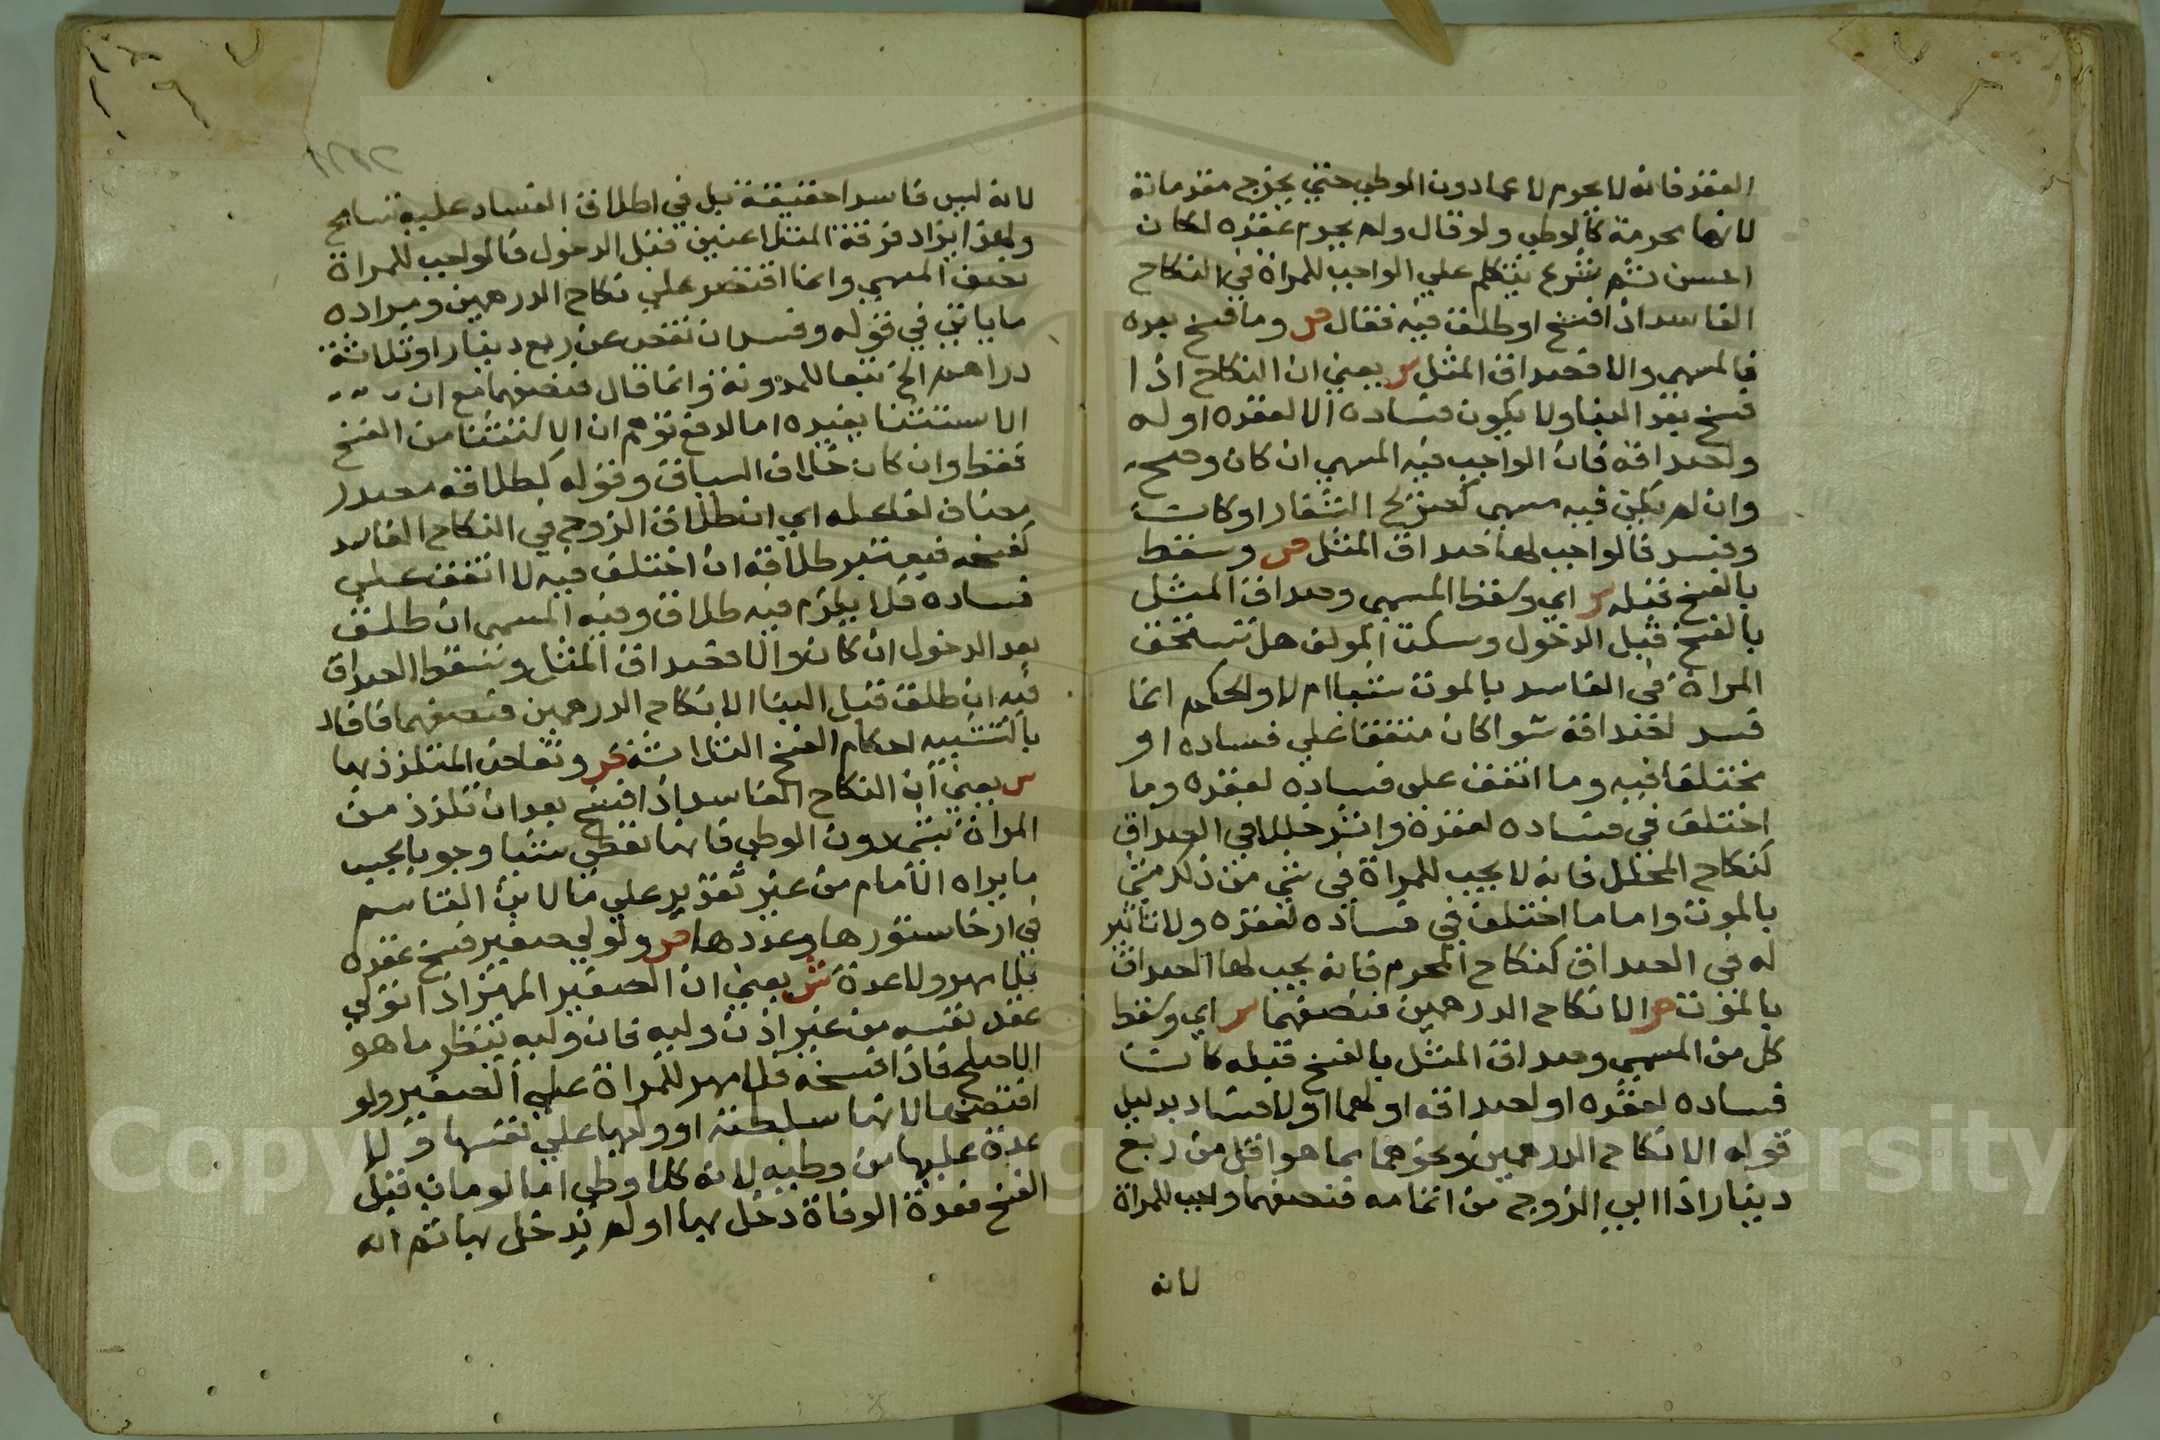 العقد فانه لا يحرم لا عما دون الوطي حتي يخرج مقدماته
لانها محرمة كالوطي ولو قال ولم يحرم عقده لكان
احسن ثم شرع يتكلم علي الواجب للمراة في النكاح
الفاسد اذا فسخ او طلق فيه فقال ص وما فسخ بعده
فالمسمي والا فصداق المثل ش يعني ان النكاح اذا
فسخ بعد البنا ولا يكون فساده الا لعقده او له
ولصداقه فان الواجب فيه المسمي ان كان وصح
وان لم يكن فيه مسمي كصريح الشغار او كان
وفسد فالواجب لها صداق المثل ص وسقط
بالفسخ قبله ش اي وسقط المسمي وصداق المثل
بالفسخ قبل الدخول وسكت المولف هل تستحق
المراة في الفاسد بالموت شيا ام لا والحكم انما
فسد لصداقه سوا كان متفقا علي فساده او
مختلفا فيه وما اتفق علي فساده لعقده وما
اختلف في فساده لعقده واثر خللا في الصداق
كنكاح المحلل فانه لا يجب للمراة في شي من ذلك شي
بالموت واما ما اختلف في فساده لعقده ولا تاثير
له في الصداق كنكاح المحرم فانه يجب لها الصداق
بالموت ص الا نكاح الدرهمين فنصفهما ش اي وسقط
كل من المسمي وصداق المثل بالفسخ قبله كان
فساده لعقده او لصداقه او لهما او لا فساد بدليل
قوله الا نكاح الدرهمين ونحوهما مما هو اقل من ربع
دينار اذا ابي الزوج من اتمامه فنصفهما واجب للمراة
لانه
لانه ليس فاسدا حقيقة بل في اطلاق الفساد عليه تسامح
ولهذا يزاد فرقة المتلاعنين قبل الدخول فالواجب للمراة
نصف المسمي وانما اقتصر علي نكاح الدرهمين ومراده
ما ياتي في قوله وفسد ان نقص عن ربع دينار او ثلاثة
دراهم الخ تبعا للمدونة وانما قال فنصفهما مع ان
الاستثنا يفيده اما لدفع توهم ان الاستثنا من الفسخ
فقط وان كان خلاف السياق وقوله كطلاقه مصدر
مضاف لفاعله اي ان طلاق الزوج في النكاح الفاسد
كفسخه فيعتبر طلاقه ان اختلف فيه لا اتفق علي
فساده فلا يلزم فيه طلاق وفيه المسمي ان طلق
بعد الدخول ان كان والا فصداق المثل وسقط الصداق
فيه ان طلق قبل البنا الا نكاح الدرهمين فنصفهما فافاد
بالتشبيه احكام الفسخ الثلاثة ص وتعاض المتلذذ بها
ش يعني ان النكاح الفاسد اذا فسخ بعد ان تلذذ من
المراة بشي دون الوطي فانها تعطي شيا وجوبا بحسب
ما يراه الامام من غير تقدير علي ما لابن القاسم
في ارخا ستورها وعددها ص ولولي صغير فسخ عقده
بلا مهر ولا عدة ش يعني ان الصغير المميز اذا تولي
عقد نفسه من غير اذن وليه فان وليه ينظر ما هو
الاصلح فاذا فسخه فلا مهر للمراة علي الصغير ولو
افتضها لانها سلطته او وليها علي نفسها ولا
عدة عليها من وطيه لانه كلا وطي اما لو مات قبل
الفسخ فعدة الوفاة دخل بها او لم يدخل بها ثم انه